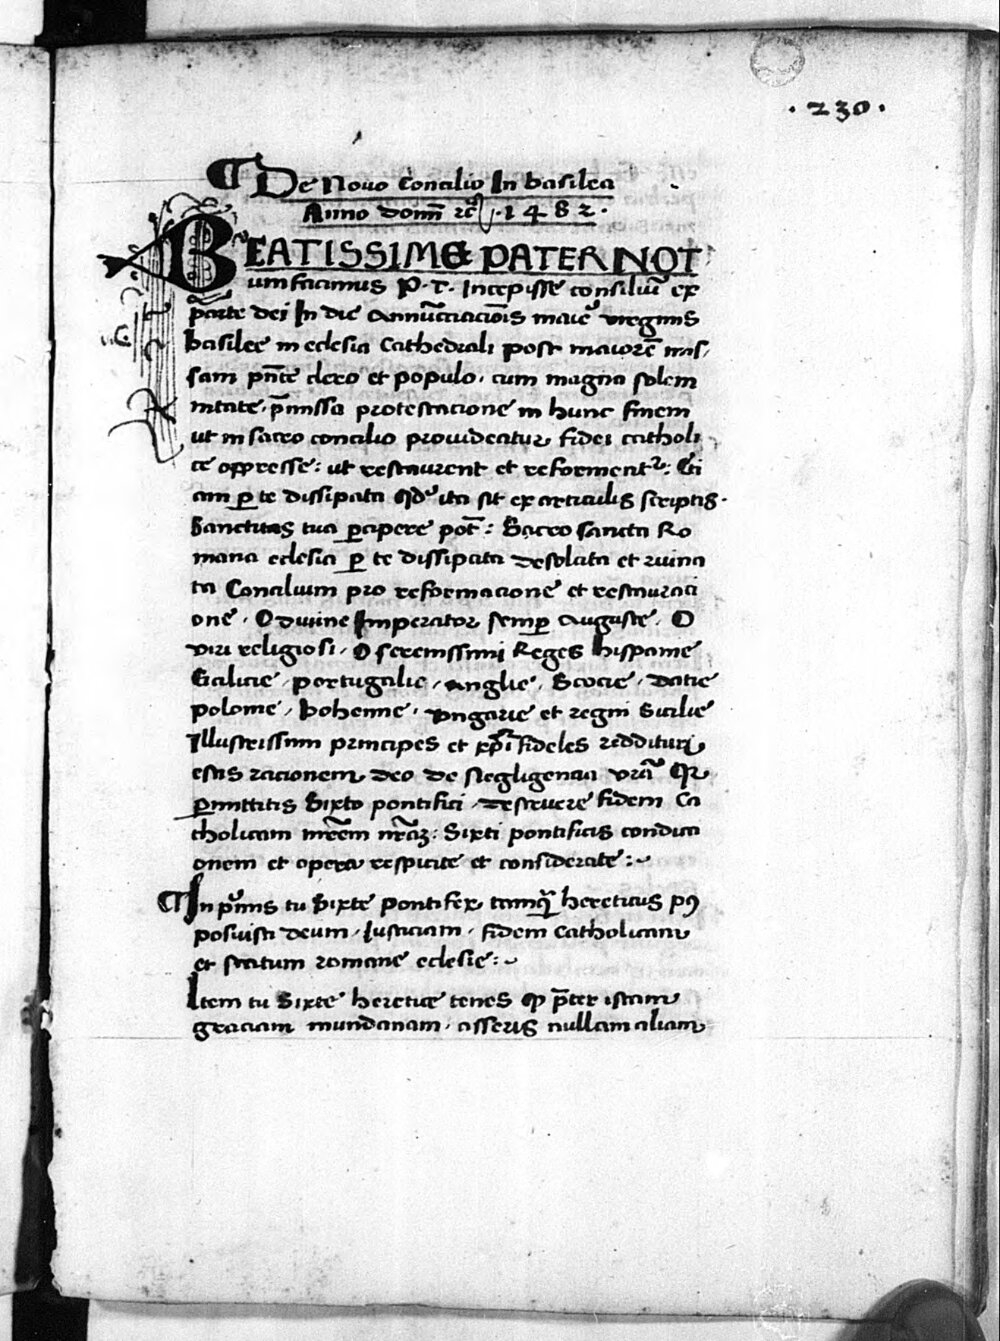 . 230 .
¶ De Nouo Concilio In basilea
Anno domī etc . 1482 .
BEATISSIME PATER NOT
um facimus P. T. Incepisse consiliuȝ ex
p̄arte dei In die Annūctiacōīs marie v̓irginis
basilee in eclesia Cathedrali post maiorē mis,
sam pn̄te clero et populo, cum magna solem
nitate, p̄missa protestacione in hunc finem
ut in sacro concilio prouideatur fidei catholi
ce oppresse: ut restaurent et reformentr: Eti
am ꝑ te dissipata qd' ita sit ex articulis scriptis.
Sanctitas tua ꝑcipere pot̄: Sacro sancta Ro
mana eclesia ꝑ te dissipata desolata et ruina
ta Concilium pro reformacione et restauraci
one. O diuine Imperator semꝑ auguste. O
viri religiosi, O serenissimi Reges hispanie
Galicie, portugalie, anglie, Scocie, datie
polonie, bohemie, vngarie et regni Sicilie
Illustrissimi principes et xp̄i fideles reddituri
estis racionem deo de Negligentia vr̄a Qr
ꝑmittitis Sixto pontifici, destruere fidem Ca
tholicam mr̄em nr̄aȝ: Sixti pontificis condici
onem et opera respicite et considerate:~
¶ In p'mis tu Sixte pontifex tamq̄ hereticus pꝯ
posuisti deum, Iusticiam, fidem catholicam
et statum romane eclesie:~
Item tu Sixte heretice tenes ꝙ p̄ter istam
graciam mundanam, asseris nullam aliam